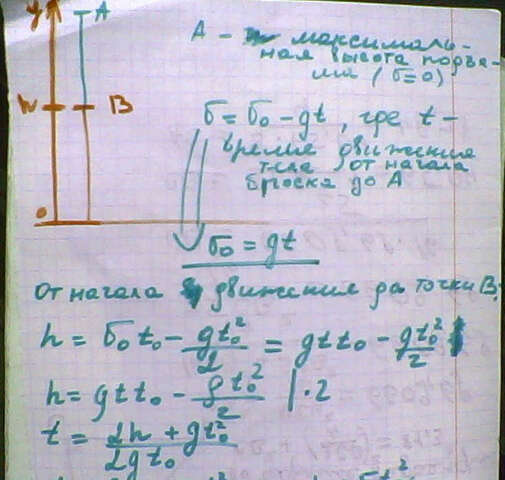 y A
A - максималь-
ная высота подъё-
ма (υ=0)
h B
υ = υ₀ - gt, где t -
время движения
тела от начала
броска до A
0
υ₀ = gt
от начала движения до точки B:
h = υ₀t₀ - gt₀²/2 = gtt₀ - gt₀²/2
h = gtt₀ - gt₀²/2 | · 2
t = 2h + gt₀²/2gt₀